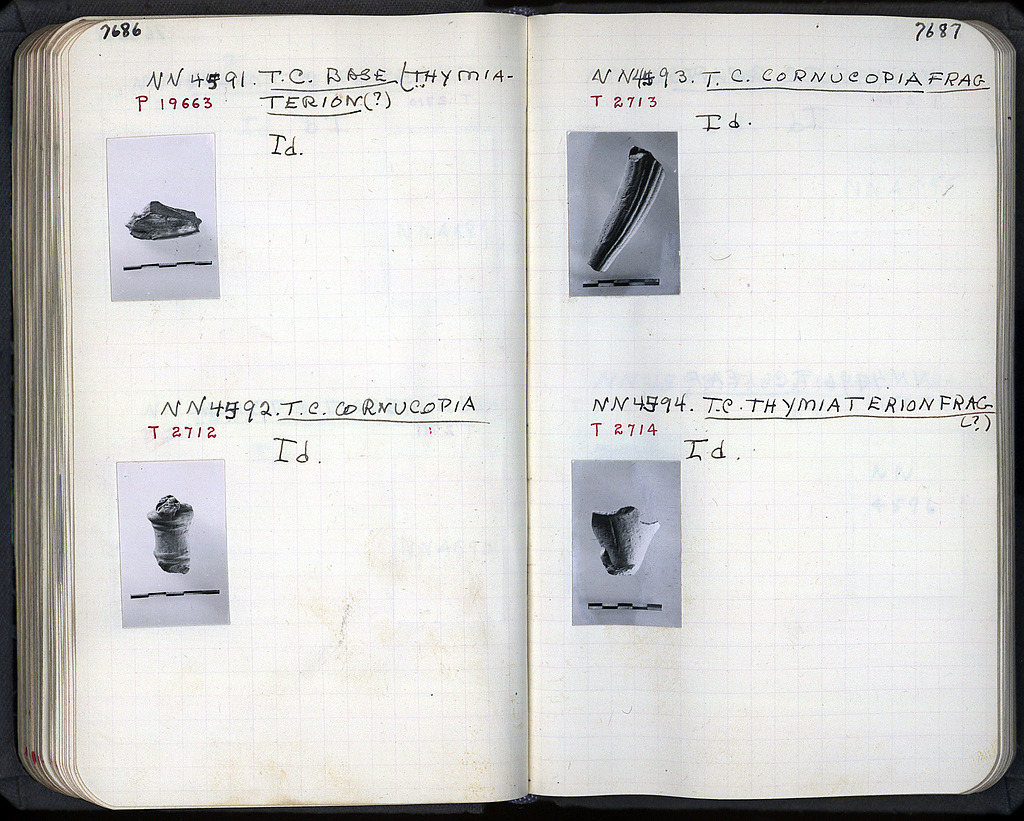 7686
NN 4591. T.C. BASE (THYMIA-
P 19663 TERION(?)
Id.
NN 4592. T.C. CORNUCOPIA
T 2712
Id.
7687
NN 4593. T.C. CORNUCOPIA FRAG
T 2713
Id.
NN 4594. T.C. THYMIATERION FRAG
(?)
T 2714
Id.